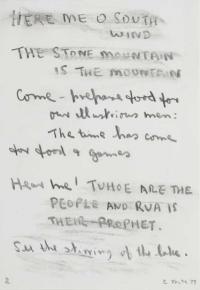 HERE ME O SOUTH
WIND
THE STONE MOUNTAIN
IS THE MOUNTAIN
Come - prepare food for
our illustrious men:
The time has come
for food & games
Hear me! TUHOE ARE THE
PEOPLE AND RUA IS
THEIR PROPHET.
See the stirring of the lake.
2